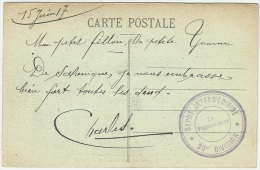 15 Juin 17
CARTE POSTALE
Mon petit fillon, Ma petite Yvonne
De Salonique, je vous embrasse
bien fort toutes les deux.
Charles
DEPOT INTERMEDIAIRE
30e DIVISION